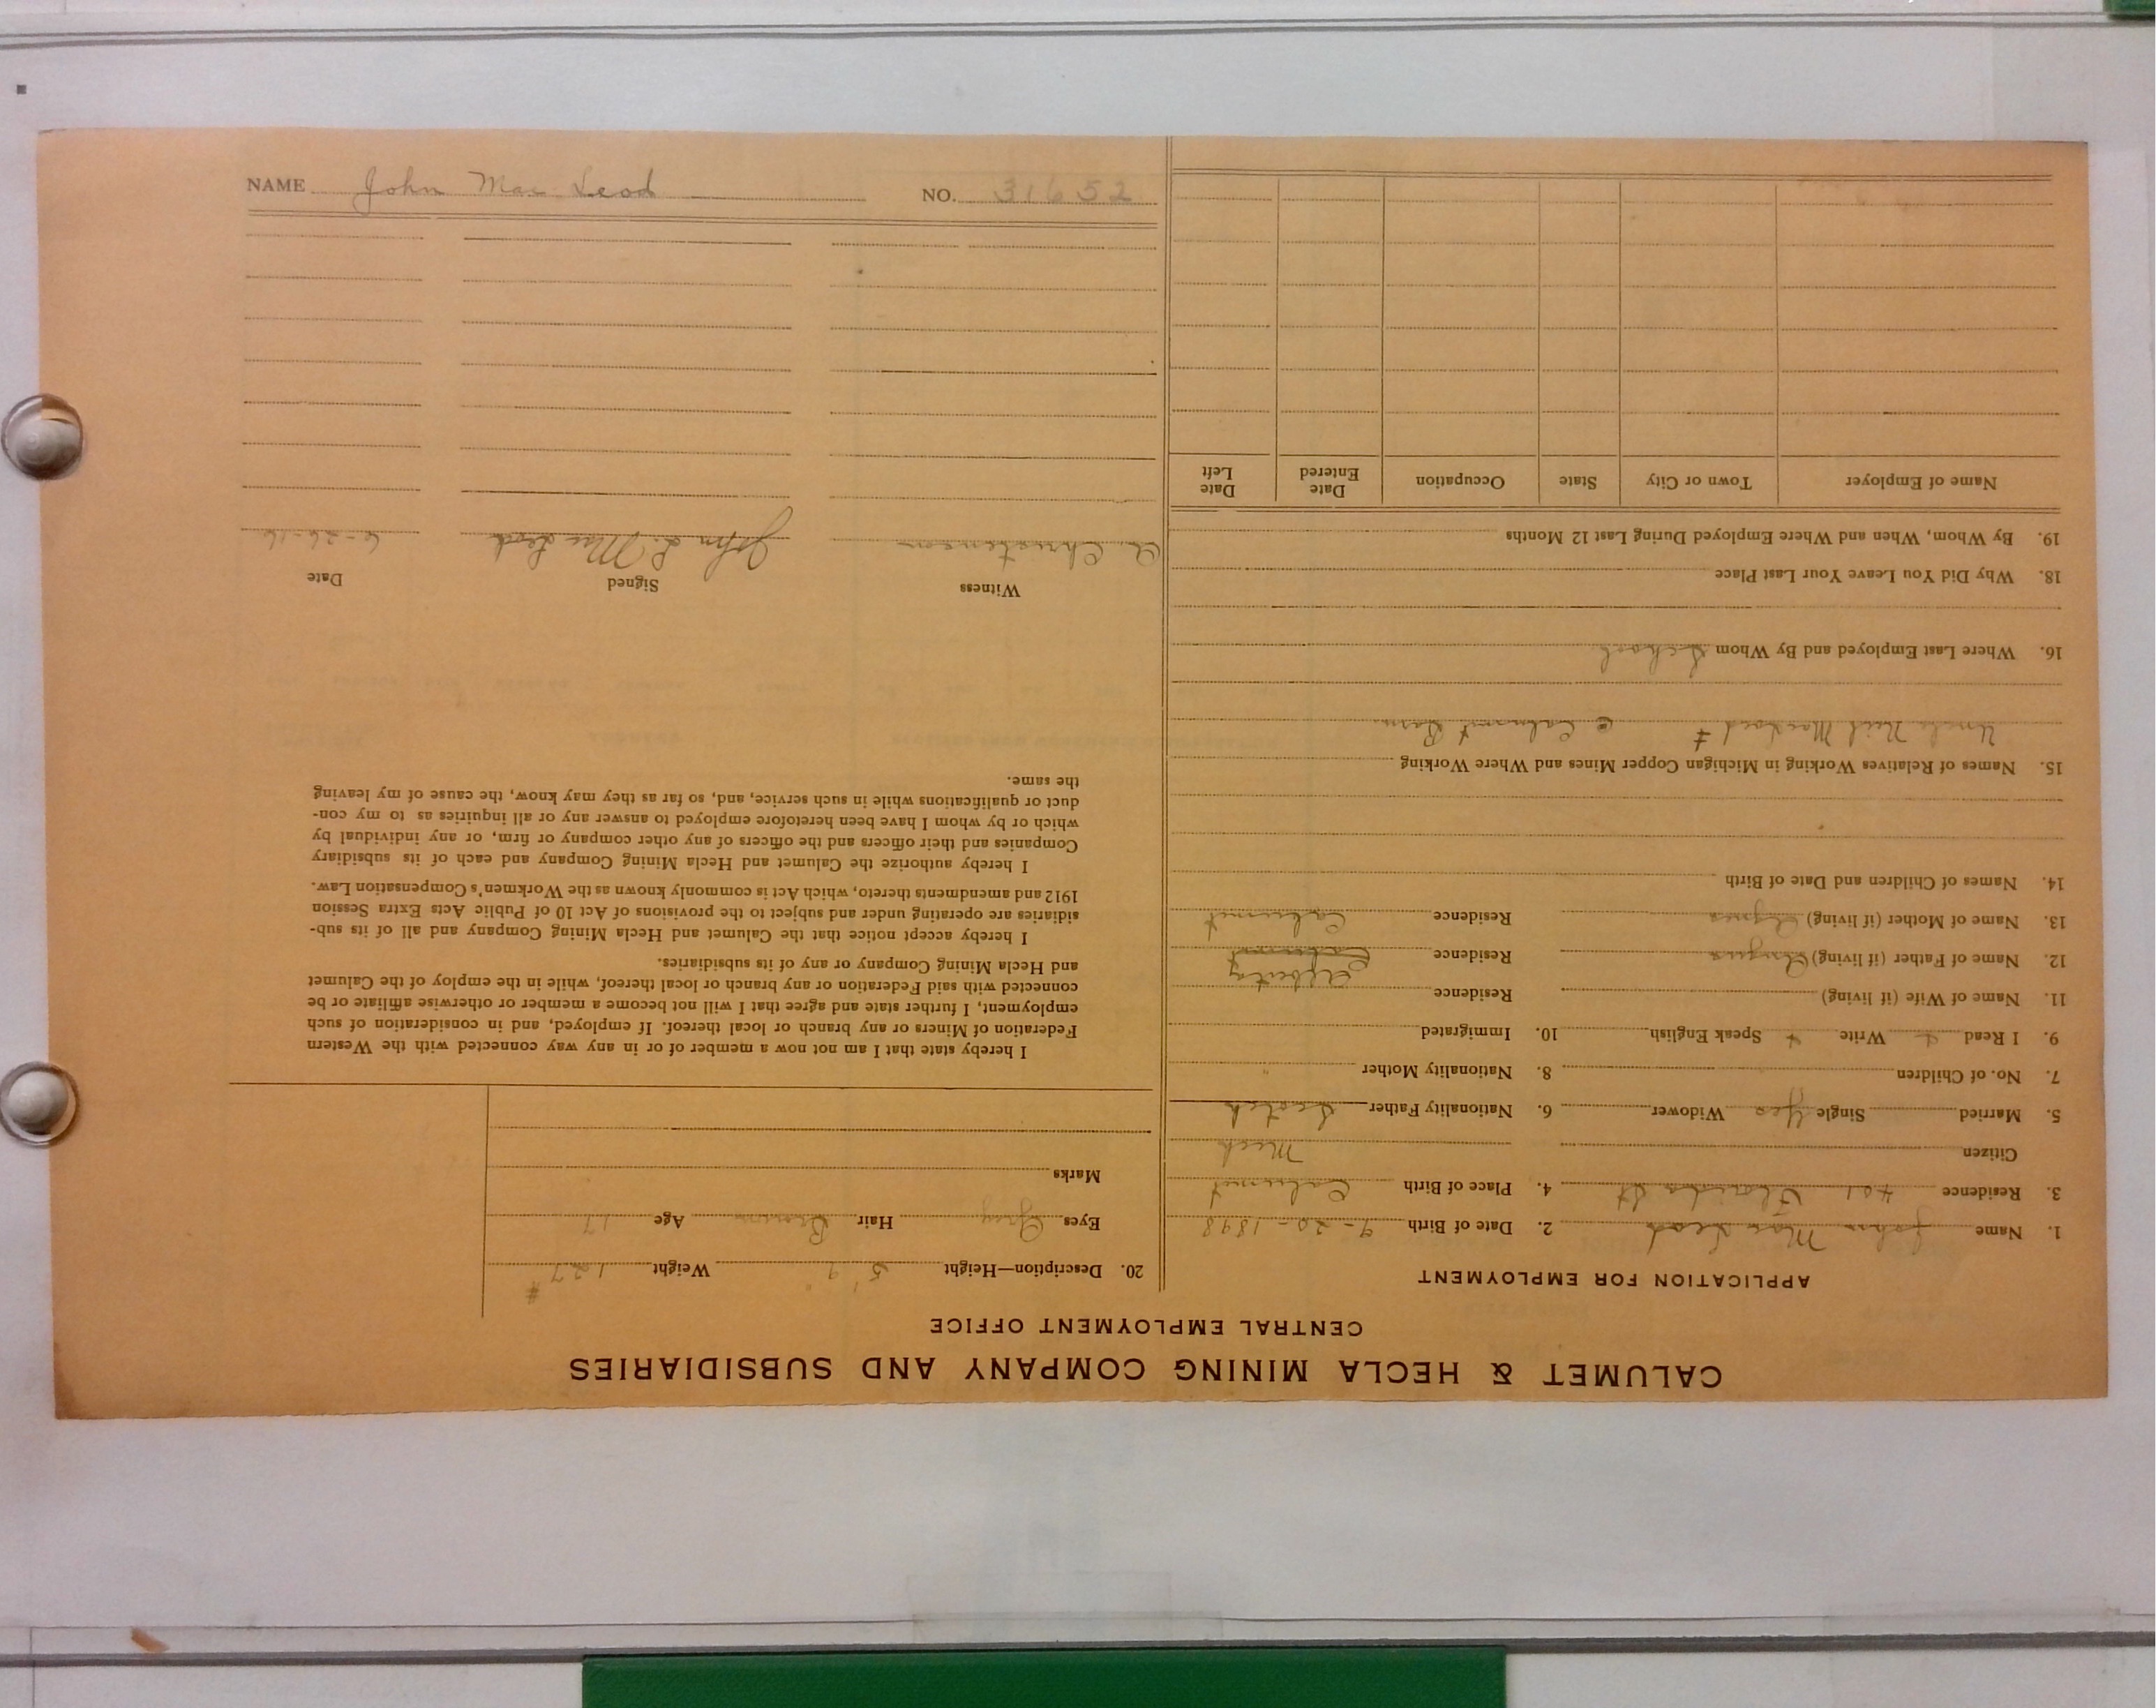 NAME John Mac Leod NO. 31652
CALUMET & HECLA MINING COMPANY AND SUBSIDIARIES
CENTRAL EMPLOYMENT OFFICE
APPLICATION FOR EMPLOYMENT
1. Name John Mac Leod 2. Date of Birth 9-20-1898
3. Residence 401 St 4. Place of Birth Calumet
Citizen Mich
5. Married Single Yes Widower 6. Nationality Father Scotch
7. No. of Children 8. Nationality Mother "
9. I Read Write Speak English 10. Immigrated
11. Name of Wife (if living) Residence
12. Name of Father (if living) Angus Residence Calumet
13. Name of Mother (if living) Agnes Residence Calumet
14. Names of Children and Date of Birth
15. Names of Relatives Working in Michigan Copper Mines and Where Working
Uncle Neil MacLeod Calumet Barn
16. Where Last Employed and By Whom School
18. Why Did You Leave Your Last Place
19. By Whom, When and Where Employed During Last 12 Months
Name of Employer Town or City State Occupation Date Entered Date Left
20. Description—Height 5' 9" Weight 127 #
Eyes Gray Hair Brown Age 17
Marks
I hereby state that I am not now a member of or in any way connected with the Western
Federation of Miners or any branch or local thereof. If employed, and in consideration of such
employment, I further state and agree that I will not become a member or otherwise affiliate or be
connected with said Federation or any branch or local thereof, while in the employ of the Calumet
and Hecla Mining Company or any of its subsidiaries.
I hereby accept notice that the Calumet and Hecla Mining Company and all of its sub-
sidiaries are operating under and subject to the provisions of Act 10 of Public Acts Extra Session
1912 and amendments thereto, which Act is commonly known as the Workmen's Compensation Law.
I hereby authorize the Calumet and Hecla Mining Company and each of its subsidiary
Companies and their officers and the officers of any other company or firm, or any individual by
which or by whom I have been heretofore employed to answer any or all inquiries as to my con-
duct or qualifications while in such service, and, so far as they may know, the cause of my leaving
the same.
Witness Signed Date
A. Christenson John L. Mac Leod 6-26-16